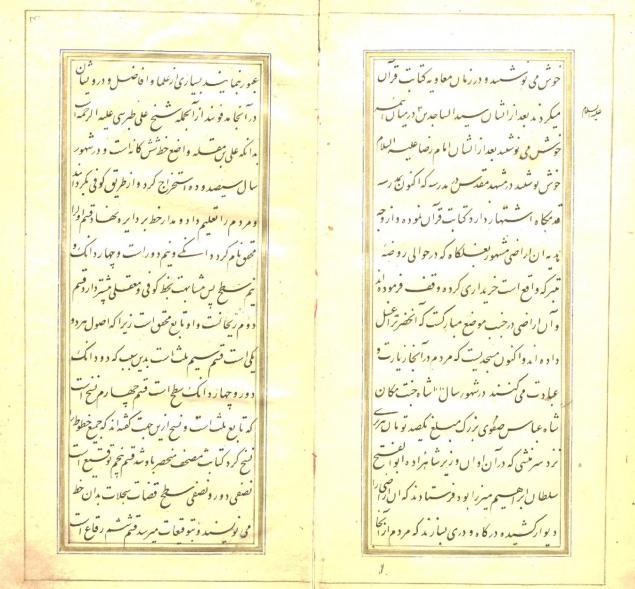 خوش می نوشتند و در زمان معاویه کتابت قرآن
میکردند بعد از ایشان سید الساجدین در میان ائمه
علیه السلام
خوش می نوشتند بعد از ایشان امام رضا علیه السلام
خوش نوشتند در مشهد مقدس در مدرسه که اکنون بمدرسه
قدمگاه اشتهار دارد کتابت قرآن نموده و از وجه
آن اراضی مشهور بغسلگاه که در حوالی روضه
متبرکه واقع است خریداری کرده وقف فرموده اند
و آن اراضی در جنب موضع مبارکست که آنحضرت را غسل
داده اند و اکنون مسجدیست که مردم در آنجا زیارت و
عبادت می کنند در شهور سال شاه جنت مکان
شاه عباس صفوی بزرگ مبلغ یکصد تومان تبریزی
نزد منشی که در آن اوان وزیر شاهزاده ابو الفتح
سلطان ابراهیم میرزا بود فرستادند که آن اراضی را
دیوار کشیده درگاه و دری بسازند که مردم از آنجا
عبور نمایند بسیاری از علما و افاضل و درویشان
در آنجا مدفونند از آنجمله شیخ علی طبرسی علیه الرحمه است
بدانکه علی بن مقله واضع خط شش گانه است و در شهور
سال سیصد و ده استخراج کرد و از طریق کوفی بگردانید
و مردم را تعلیم داد و مدار خط بر دایره نهاد قسم اول را
محقق نام کرد دانگ و نیم دور است و چهار دانک و
نیم سطح پس مشابهت بخط کوفی و معقلی بیشتر دارد قسم
دوم ریحانست و او تابع محقق است زیرا که اصول هر دو
یکی است قسم سیم ثلث است بدین سبب که دو دانک
دور و چهار دانک سطح است قسم چهارم نسخ است
که تابع ثلث است و نسخ ازین جهت گفته اند که جمیع خطوط را
نسخ کرد و کتابت مصحف منحصر باو شد قسم پنجم توقیع است
نصفی دور و نصفی سطح قضات سجلات بدان خط
می نویسند و بتوقیعات میرسد قسم ششم رقاع است